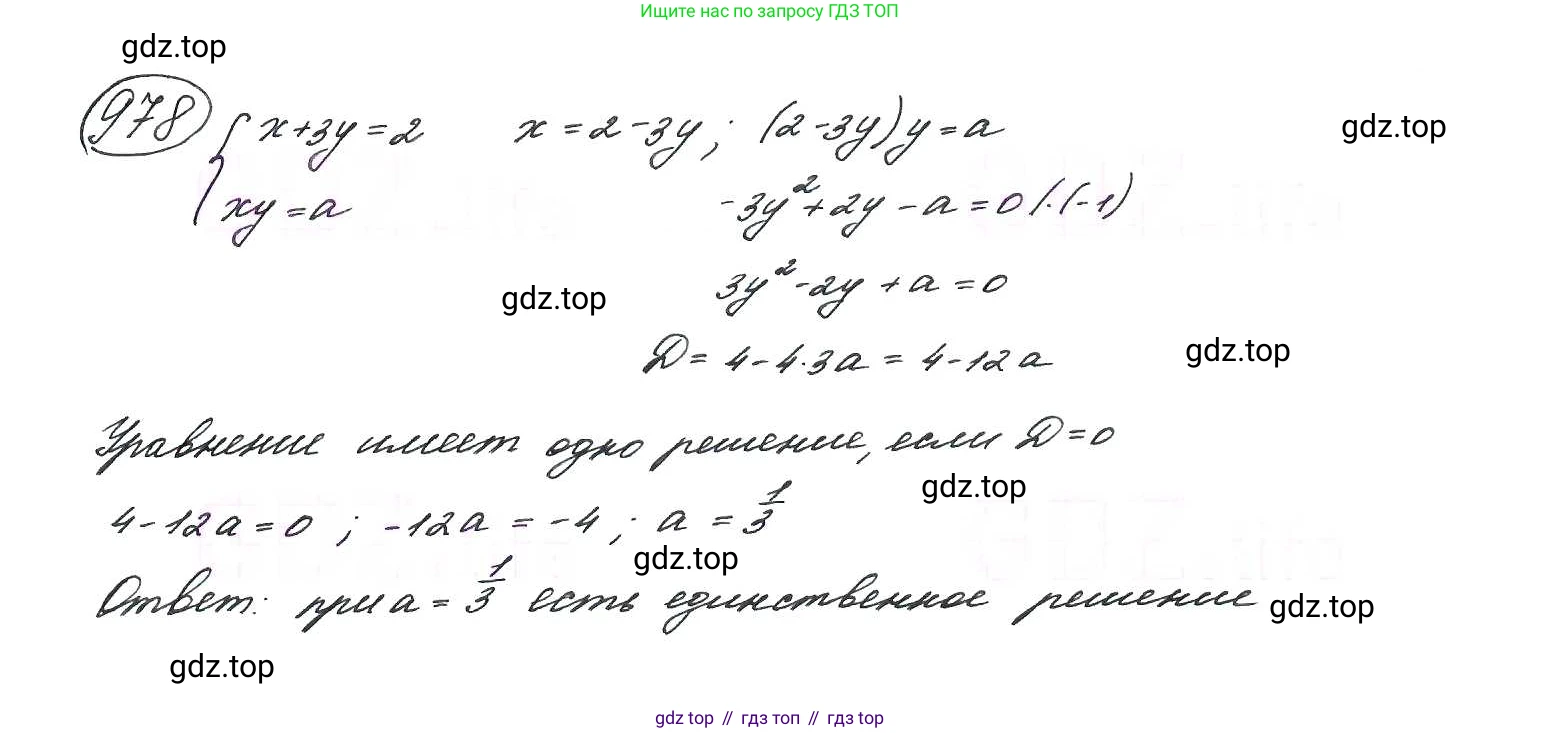 Ищите нас по запросу ГДЗ ТОП
gdz.top
978 { x+3y=2 x=2-3y; (2-3y)y=a gdz.top
xy=a -3y²+2y-a=0 /·(-1)
gdz.top 3y²-2y+a=0
D=4-4·3a=4-12a gdz.top
Уравнение имеет одно решение, если D=0
gdz.top
4-12a=0; -12a=-4; a=1/3
gdz.top
Ответ: при a=1/3 есть единственное решение gdz.top
gdz.top
gdz top // гдз топ // gdz top